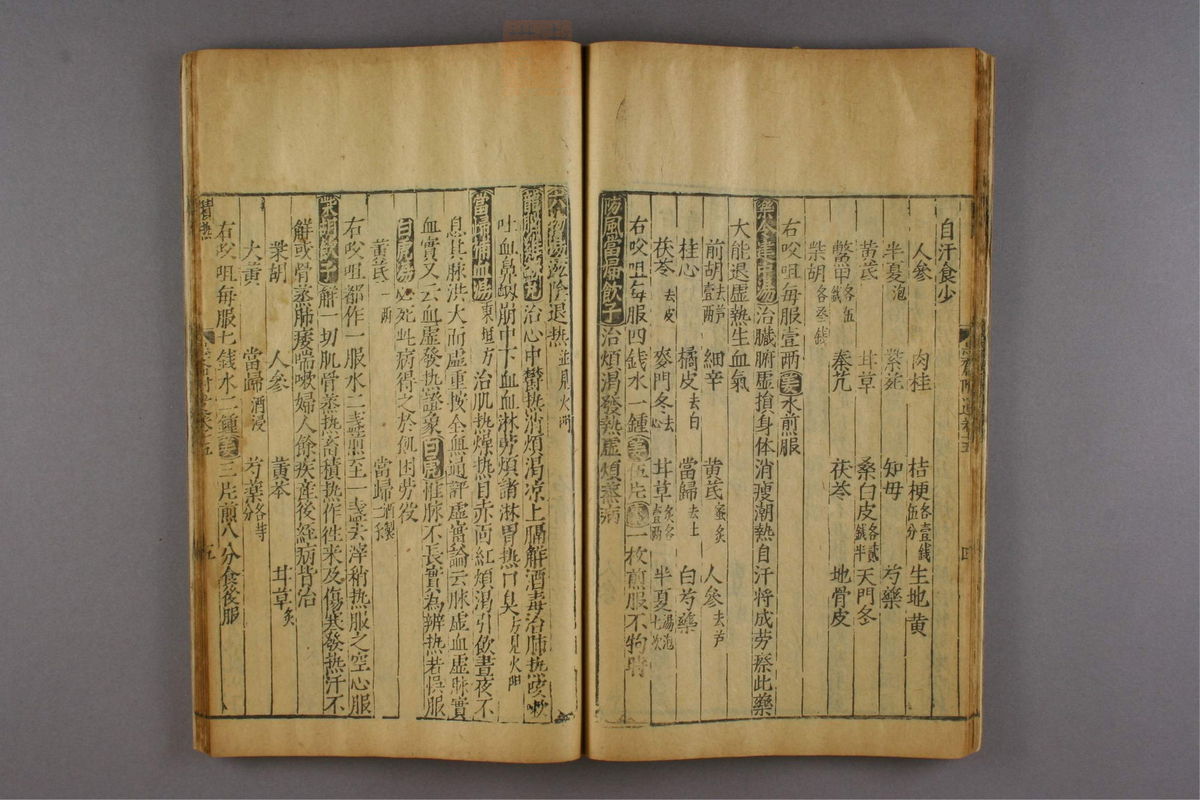 自汗食少
人參 肉桂 桔梗各壹錢伍分 生地黃
半夏泡 紫菀 知母 芍藥
黃芪 甘草 桑白皮各貳錢半 天門冬
鱉甲各伍錢 秦艽 茯苓 地骨皮
柴胡各叁錢
右㕮咀每服壹兩姜水煎服
樂令建中湯治臟腑虛損身体消瘦潮熱自汗将成劳瘵此藥
大能退虛熱生血氣
前胡去芦壹兩 細辛 黃芪蜜炙 人參去芦
桂心 橘皮去白 當歸去土 白芍藥
茯苓去皮 麥門冬去心 甘草炙各壹兩 半夏湯泡七次
右㕮咀每服四錢水一鍾姜伍片棗一枚煎服不拘時
防風當歸飲子治煩渴發熱虛煩蒸病
六物湯滋陰退热並見火門
龍腦雞蘇丸治心中鬱热消煩渴凉上膈解酒毒治肺热咳嗽
吐血鼻衂崩中下血血淋劳煩諸淋胃热口臭方見火門
當歸補血湯東垣方治肌热燥热目赤面紅煩渴引飲晝夜不
息其脉洪大而虛重按全無通評虛實論云脉虛血虛脉實
血實又云血虛發热證象白虎惟脉不長實為辨热若悞服
白虎湯必死此病得之於飢困劳役
黃芪一兩 當歸二錢酒製
右㕮咀都作一服水二盞煎至一盞去滓稍热服之空心服
柴胡飲子解一切肌骨蒸热畜積热作徃来及傷寒發热汗不
解或骨蒸肺痿喘嗽婦人餘疾産後経病皆治
柴胡 人參 黃芩 甘草炙
大黃 當歸酒浸 芍藥各等分
右㕮咀每服七錢水二鍾姜三片煎八分食後服
五